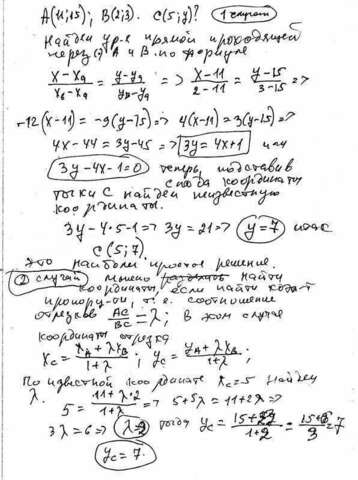 A(11;15); B(2;3). C(5;y)? 1 случай
Найдем ур-е прямой проходящей
через (·) A и B по формуле
x-xₐ/x_B-xₐ = y-yₐ/y_B-yₐ => x-11/2-11 = y-15/3-15 =>
-12(x-11) = -9(y-15) => 4(x-11)=3(y-15) =>
4x-44=3y-45 => 3y=4x+1 или
3y-4x-1=0 теперь, подставив
сюда координаты
точки C найдем неизвестную
координаты.
3y-4·5-1 => 3y=21 => y=7
C(5;7)
Это наиболее простое решение.
2 случай можно найти
координаты, если найти
пропор-ии, т.е. соотношение
отрезков AC/BC = λ; в этом случае
координаты отрезка
x_C = x_A+λx_B/1+λ ; y_C = y_A+λy_B/1+λ ;
По известной координате x_C=5 найдем
λ. 5 = 11+λ·2/1+λ => 5+5λ=11+2λ =>
3λ=6 => λ=2 тогда y_C = 15+2·3/1+2 = 15+6/3 = 7
y_C=7.